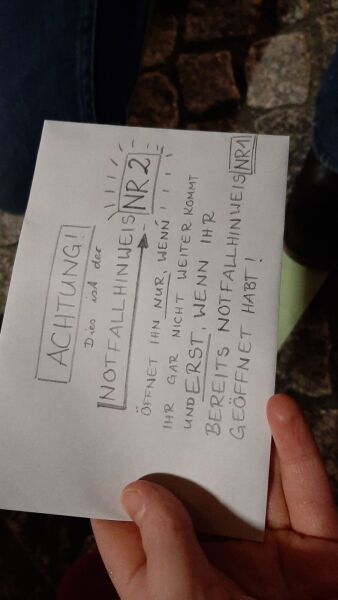 ACHTUNG!
Dies ist der
NOTFALLHINWEIS NR 2
ÖFFNET IHN NUR, WENN
IHR GAR NICHT WEITER KOMMT
UND ERST, WENN IHR
BEREITS NOTFALLHINWEIS NR 1
GEÖFFNET HABT!